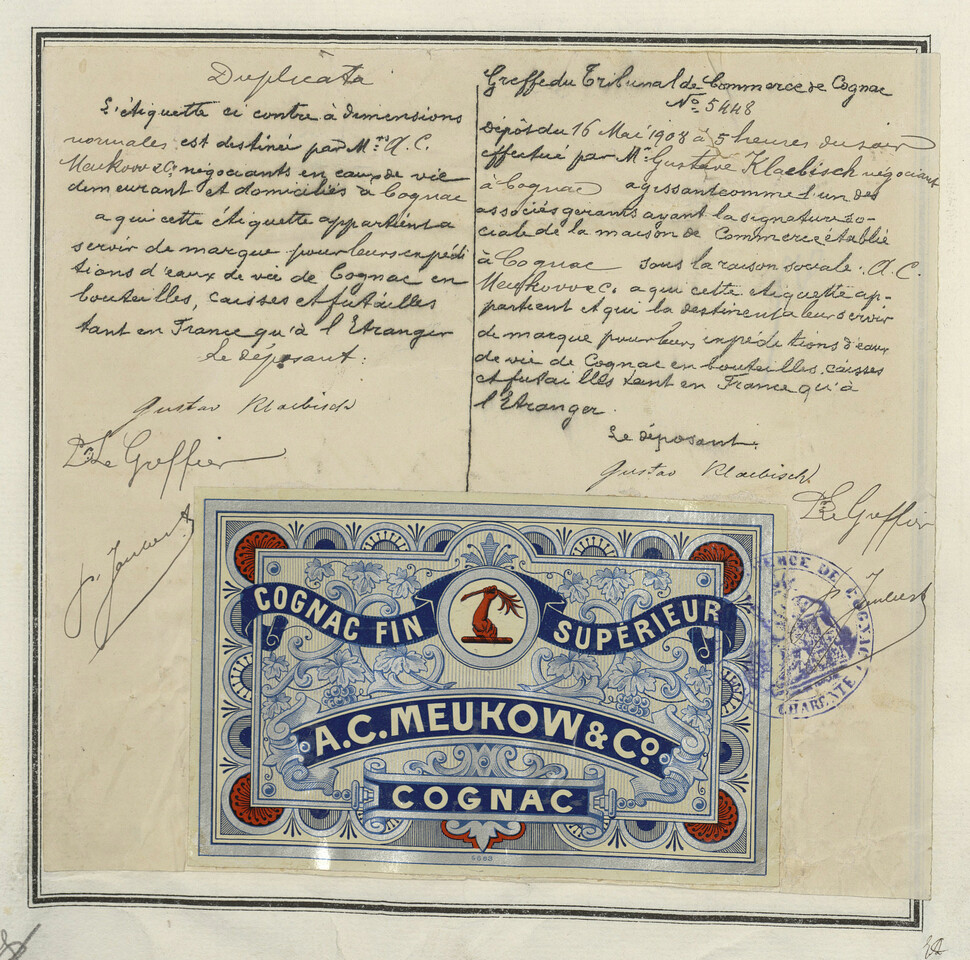 Duplicata
L'étiquette ci contre à dimensions
normales est destinée par Mrs A. C.
Meukow & Co négociants en eaux de vie
demeurant et domiciliés à Cognac
a qui cette étiquette appartient a
servir de marque pour leurs expédi
tions d'eaux de vie de Cognac en
bouteilles, caisses et futailles
tant en France qu'à l'Etranger
Le déposant:
Gustav Klaebisch
Pr Le Greffier
Greffe du Tribunal de Commerce de Cognac
No 5448
Dépôt du 16 Mai 1908 à 5 heures du soir
effectué par Mr Gustave Klaebisch négociant
à Cognac agissant comme l'un des
associés gerants ayant la signature so-
ciale de la maison de Commerce établie
à Cognac sous la raison sociale: A. C.
Meukow & Co. a qui cette étiquette ap-
partient et qui la destinent a leur servir
de marque pour leurs expéditions d'eaux
de vie de Cognac en bouteilles, caisses
et futailles tant en France qu'à
l'Etranger.
Le déposant:
Gustav Klaebisch
Pr Le Greffier
COGNAC FIN SUPÉRIEUR
A.C. MEUKOW & Co.
COGNAC
DE COGNAC
CHARENTE